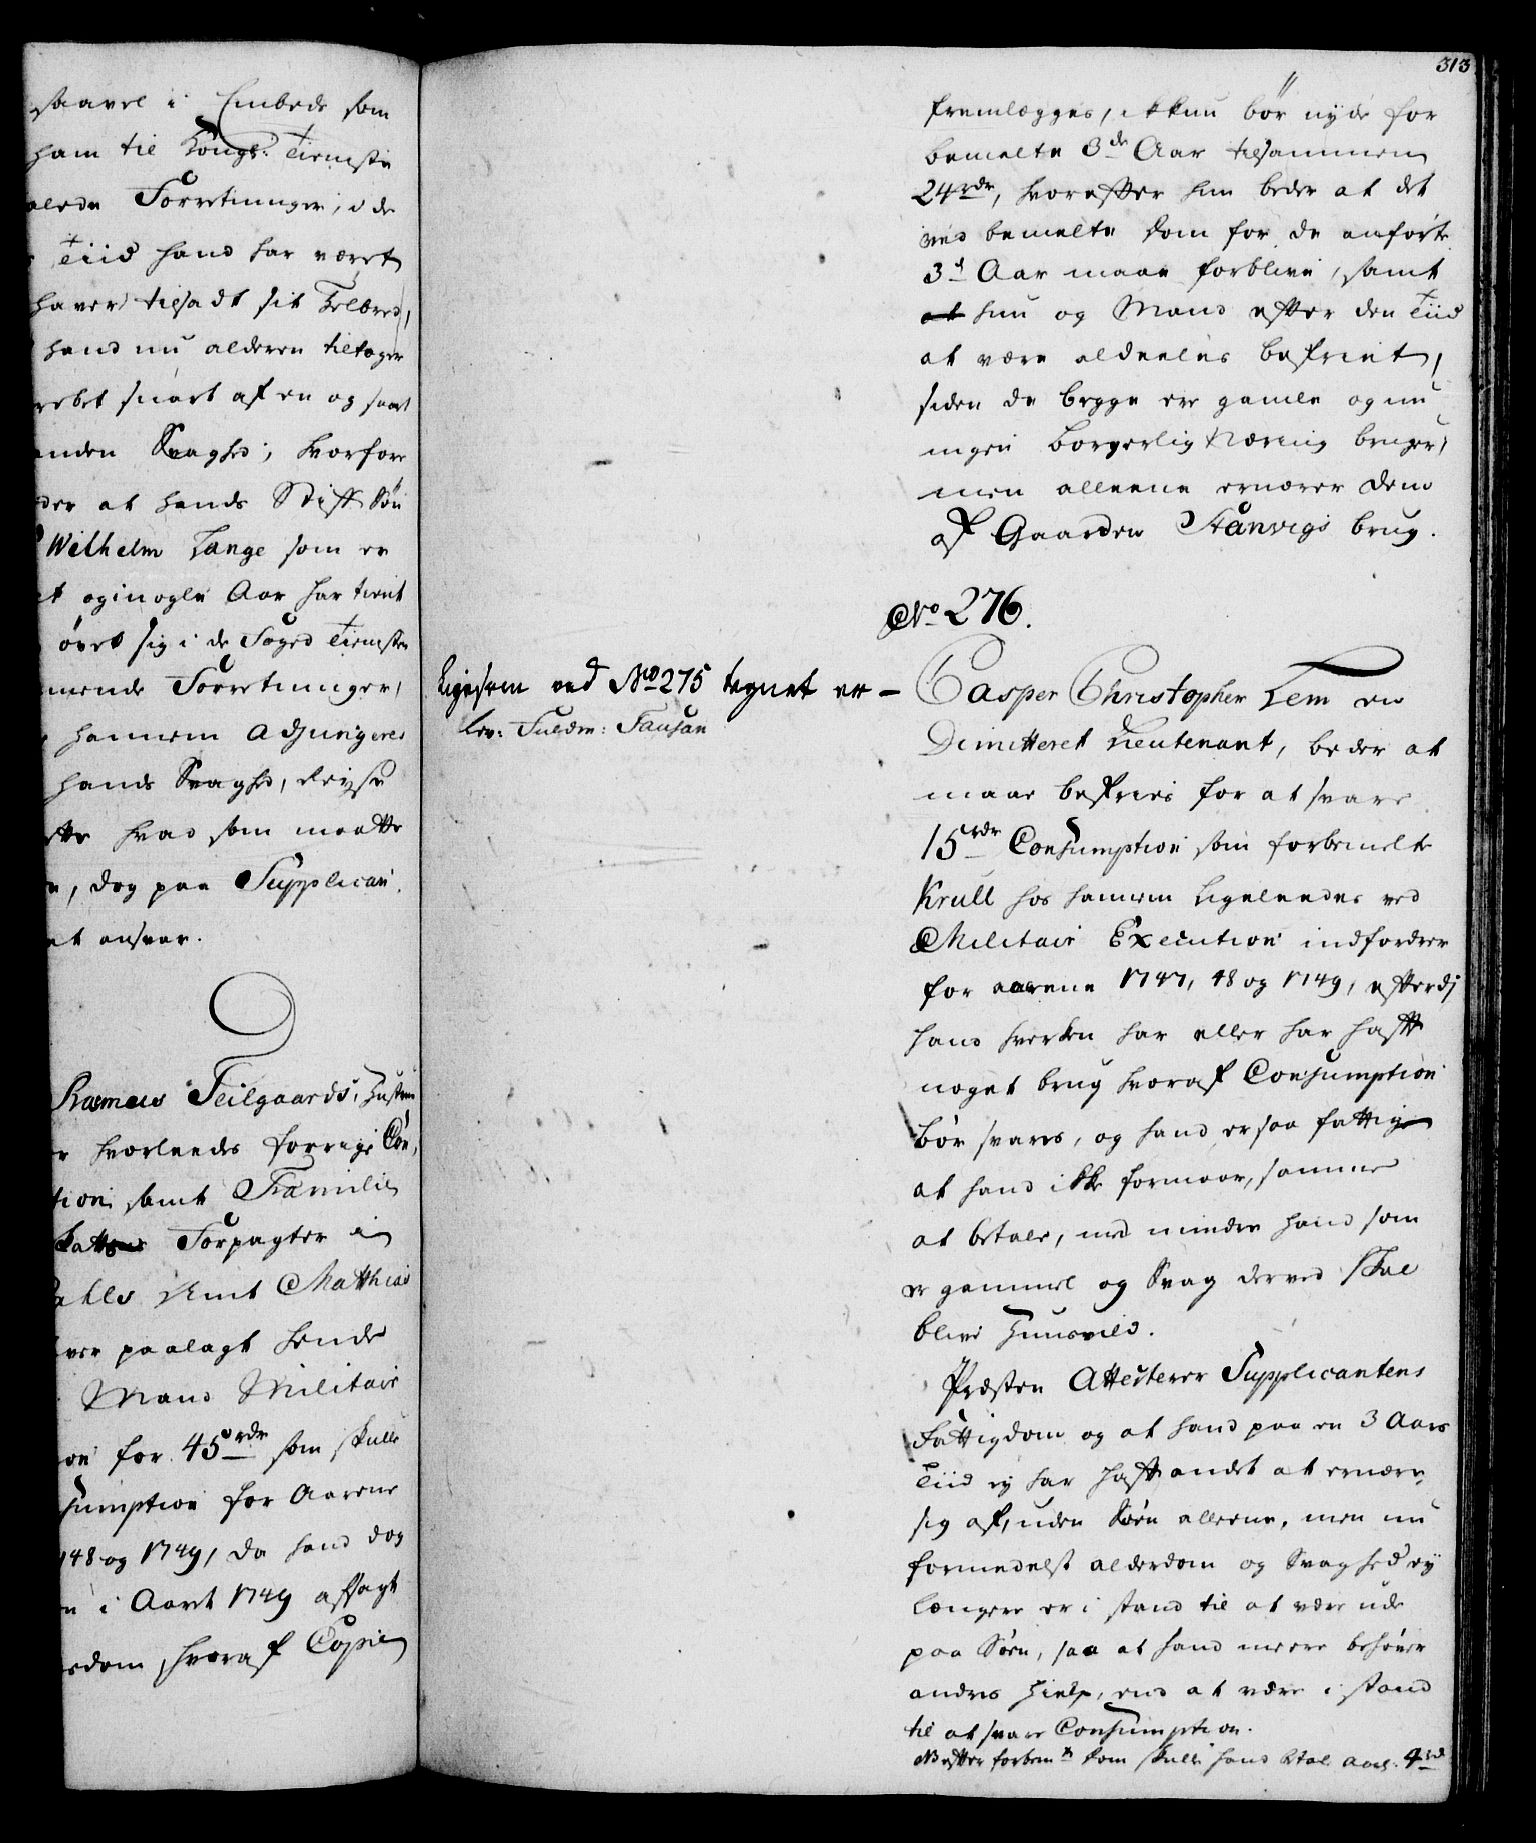 saavel i Embede som
ham til Kongl: Tieneste
Forretninger, i de
Tiid hand har været
haver tilsadt sit Helbred,
hand nu alderen tiltager
snart af en og snart
anden Svaghed; hvorfore
at hands Stiff Søn
Wilhelm Lange som er
og i nogle Aar har tient
øvet sig i de Søged Tienesten
Forretninger,
hannem Adjungeres
hands Svaghed, Reyse
hvad som maatte
dog paa Supplican
ansvar.
Rasmus Teilgaards Hustrue
hvorleedes forrige Con,
tion samt Familie
Skatt Forpagter i
Amt Matthias
paalagt hende
Mand Militair
for 45 rdr som skulle
sumption for Aarene
148 og 1749, da hand dog
i Aaret 1749 afsagt
dom, hvoraf Copie
313
fremlægges, ikkun bør nyde for
bemelte 3de Aar tilsammen
24 rdr, hvorefter hun beder at det
ved bemelte Dom for de anførte
3de Aar maae forblive, samt
at hun og Mand efter den Tiid
at være aldeeles befriet,
siden de begge ere gamle og nu
ingen borgerlig Næring bruger,
men alleene ernærer dem
af Gaarden Stanvigs brug.
No 276.
Ligesom ved No 275 tegnet er –
Lev: Fuldm: Fausan
Casper Christopher Lem en
Dimitteret Lieutenant, beder at
maae befries for at svare
15 rdr Consumption som forbemelte
Krull hos hannem ligeleedes ved
Militair Execution indfordrer
for aarene 1747, 48 og 1749, efterdj
hand hverken har eller har hafft
noget brug hvoraf Consumption
bør svares, og hand er saa fattig
at hand ikke formaar, samme
at betale, med mindre hand som
er gammel og Svag derved skal
blive Huusvild.
Præsten Attesterer Supplicantens
Fattigdom og at hand paa en 3 Aars
Tiid ey har hafft andet at ernære
sig af, uden Søen alleene, men nu
formedelst alderdom og Svaghed ey
længere er i stand til at være ude
paa Søen, saa at hand meere behøver
andres Hielp, end at være i stand
til at svare Consumption.
NB efter forbemte Dom skulle hand betale aarl. 4 rd